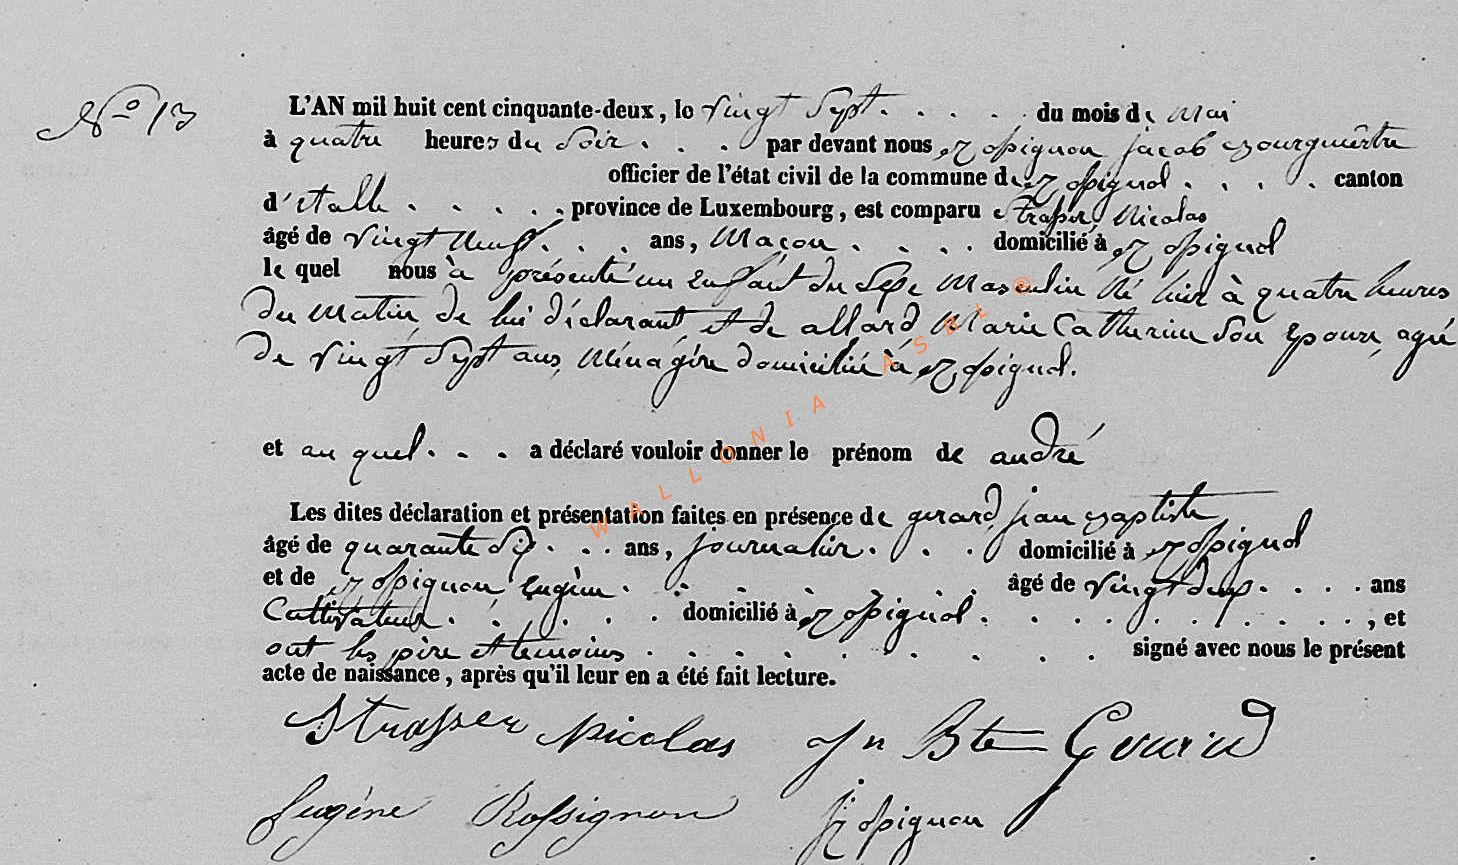 N° 13
L'AN mil huit cent cinquante-deux, le vingt Sept . . . . du mois de Mai
à quatre heures du Soir . . . par devant nous Rossignon jacob Bourguestre
officier de l'état civil de la commune de Rossignol . . . . canton
d'etalle . . . . . province de Luxembourg, est comparu Strasser Nicolas
âgé de vingt Neuf . . . ans, Maçon . . . . domicilié à Rossignol
le quel nous à présenté un enfant du Sexe Masculin Né hier à quatre heures
du Matin de lui déclarant et de allard Marie Catherine Son Epouse, agée
de vingt Sept ans, Ménagère domiciliée à Rossignol.
et au quel . . . a déclaré vouloir donner le prénom de andré
Les dites déclaration et présentation faites en présence de gerard, jean Baptiste
âgé de quarante Six . . . ans, journalier . . . . domicilié à Rossignol
et de Rossignon Eugène . . . . . . . âgé de vingt deux . . . . ans
Cultivateur . . . . . . domicilié à Rossignol . . . . . . . . . . . , et
ont les père et temoins . . . . . . . . signé avec nous le présent
acte de naissance, après qu'il leur en a été fait lecture.
Strasser Nicolas Jn Bte Gerard
Eugène Rossignon J Rossignon
WALLONIA ASBL ©